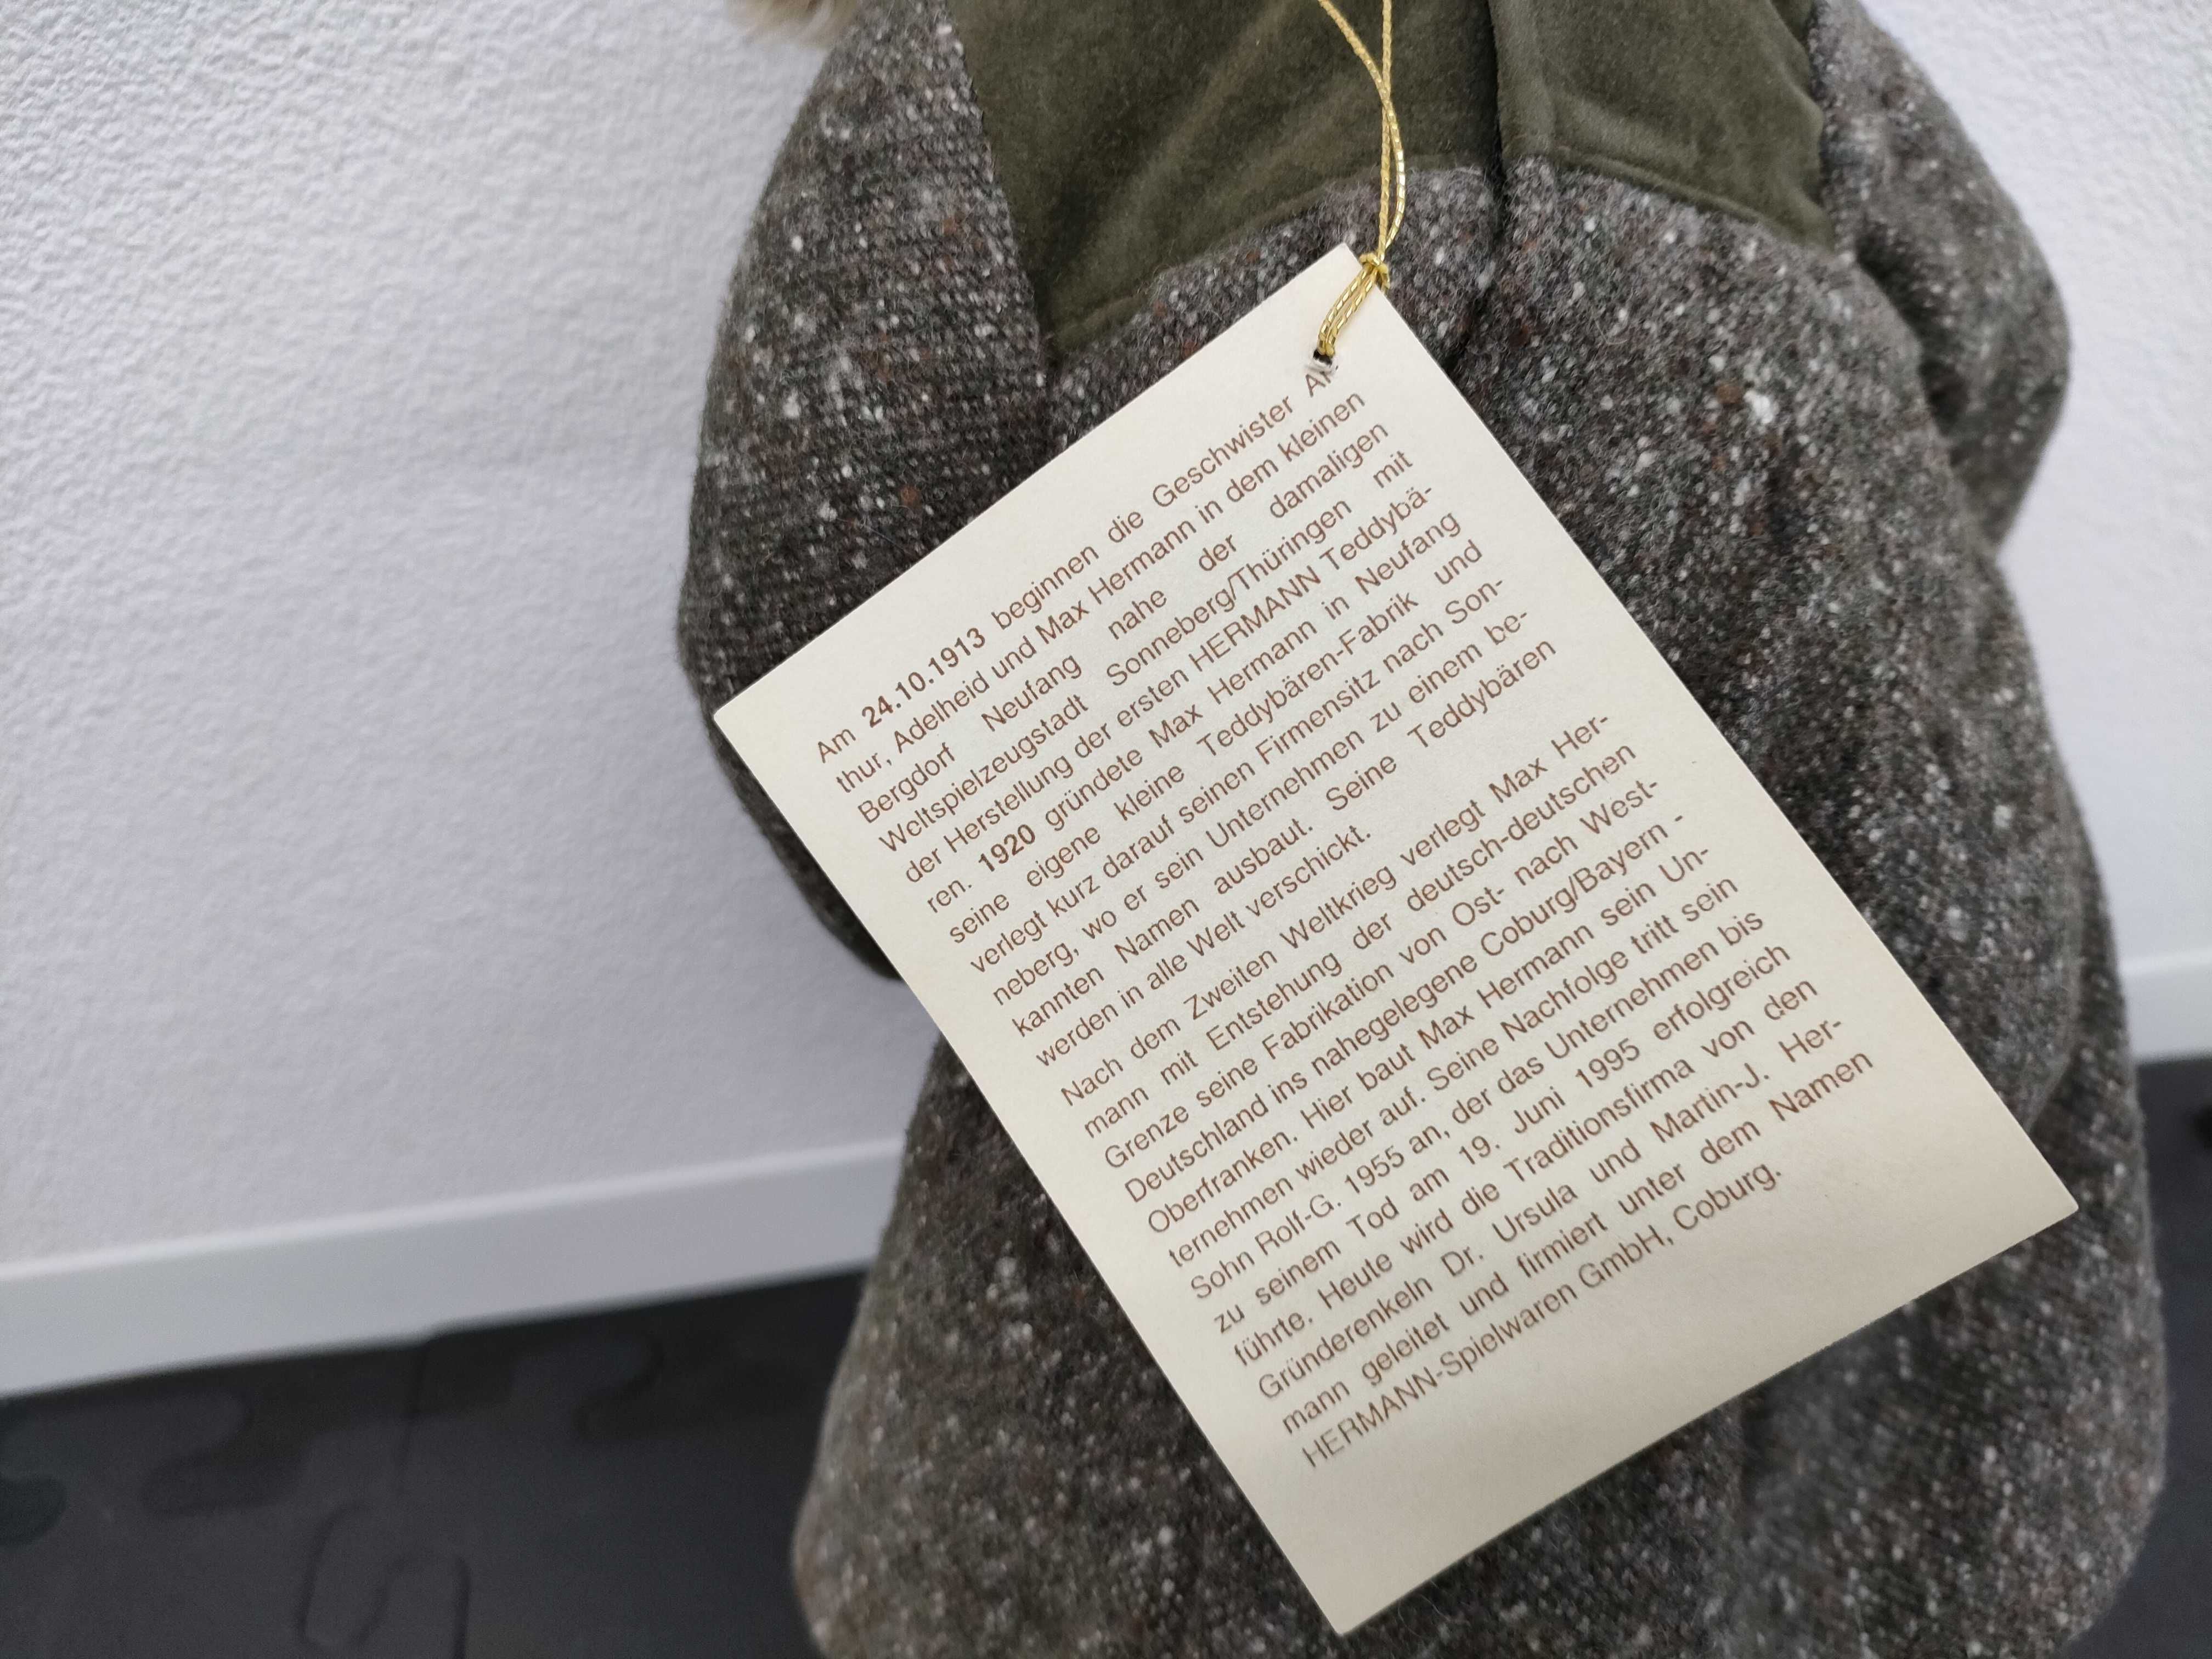 Am 24.10.1913 beginnen die Geschwister Ar-
thur, Adelheid und Max Hermann in dem kleinen
Bergdorf Neufang nahe der damaligen
Weltspielzeugstadt Sonneberg/Thüringen mit
der Herstellung der ersten HERMANN Teddybä-
ren. 1920 gründete Max Hermann in Neufang
seine eigene kleine Teddybären-Fabrik und
verlegt kurz darauf seinen Firmensitz nach Son-
neberg, wo er sein Unternehmen zu einem be-
kannten Namen ausbaut. Seine Teddybären
werden in alle Welt verschickt.
Nach dem Zweiten Weltkrieg verlegt Max Her-
mann mit Entstehung der deutsch-deutschen
Grenze seine Fabrikation von Ost- nach West-
Deutschland ins nahegelegene Coburg/Bayern -
Oberfranken. Hier baut Max Hermann sein Un-
ternehmen wieder auf. Seine Nachfolge tritt sein
Sohn Rolf-G. 1955 an, der das Unternehmen bis
zu seinem Tod am 19. Juni 1995 erfolgreich
führte. Heute wird die Traditionsfirma von den
Gründerenkeln Dr. Ursula und Martin-J. Her-
mann geleitet und firmiert unter dem Namen
HERMANN-Spielwaren GmbH, Coburg.